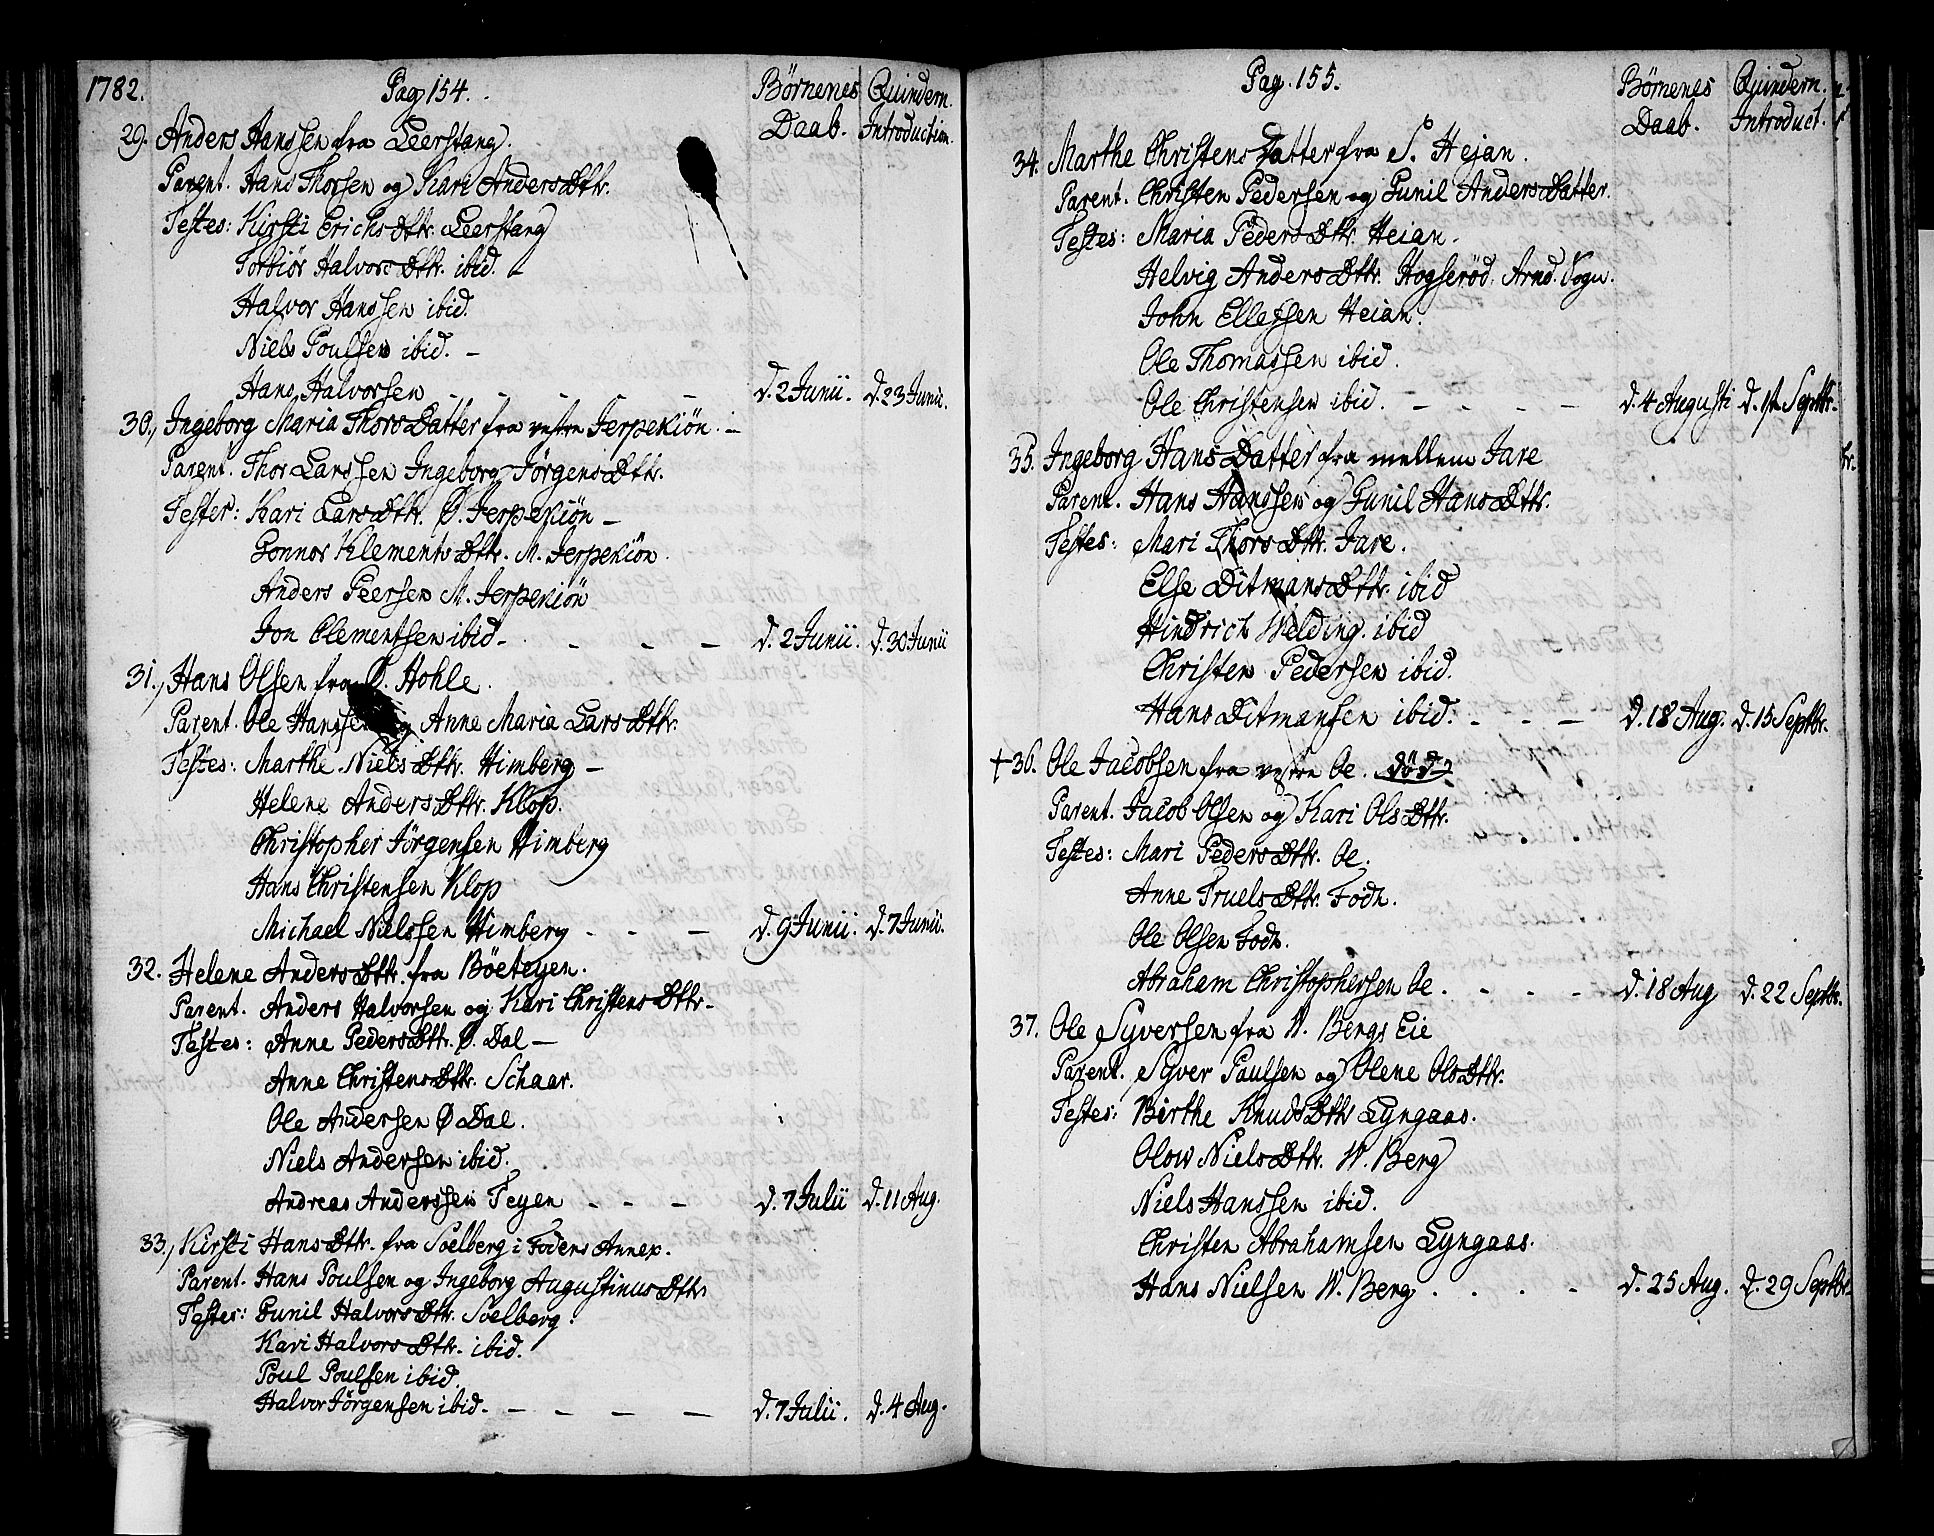 1782. Pag 154. Börnenes Daab. Quindern. Introduction.
29. Anders Hanssen fra Leerstang.
Parent. Hans Thorsen og Kari Anders Dttr.
Testes: Kirsti Erichs Dttr. Leerstang
Torbiör Halvors Dttr. ibid. -
Halvor Hanssen ibid.
Niels Poulsen ibid. -
Hans Halvorsen - - - - d. 2 Junii. d. 23 Junii.
30., Ingeborg Maria Thors Datter fra vestre Jerpekiön. -
Parent. Thor Larssen Ingeborg Jörgens Dttr.
Testes: Kari Lars Dttr. Ø. Jerpekiön -
Gonnor Klements Dttr. M. Jerpekiön.
Anders Peersen M. Jerpekiön
Jon Clementsen ibid - - - - d. 2 Junii. d. 30 Junii
31., Hans Olsen fra Ø. Hohle.
Parent. Ole Hanssen og Anne Maria Lars Dttr.
Testes: Marthe Niels Dttr. Himberg -
Helene Anders Dttr. Klop.
Christopher Jörgensen Himberg
Hans Christensen Klop
Michael Nielssen Himberg - - - d. 9 Junii. d. 7 Junii.
32. Helene Anders Dttr. fra Böeteyen.
Parent. Anders Halvorsen og Kari Christens Dttr.
Testes: Anne Peders Dttr. Ø. Dal -
Anne Christens Dttr. Schaar.
Ole Andersen Ø Dal.
Niels Andersen ibid.
Andreas Anderssen Teyen - - - d. 7 Julii d. 11 Aug.
33., Kirsti Hans Dttr. fra Solberg i Fodens Annex.
Parent. Hans Poulsen og Ingeborg Augustinus Dttr
Testes: Gunil Halvors Dttr. Solberg.
Kari Halvors Dttr. ibid.
Poul Poulsen ibid.
Halvor Jörgensen ibid. - - - - - d. 7 Julii. d. 4 Aug.
Pag. 155. Börnenes Daab. Quindern. Introduct.
34. Marthe Christens Datter fra S. Hejan.
Parent. Christen Pedersen og Gunil Anders Datter.
Testes: Maria Peders Dttr. Heian.
Helvig Anders Dttr. Hogseröd. Arnd. Sogn.
John Ellefsen Heian.
Ole Thomassen ibid.
Ole Christensen ibid. - - - - d. 4 Augusti d. 1st Septbr.
35. Ingeborg Hans Datter fra mellem Jare
Parent. Hans Hanssen og Gunil Hans Dttr.
Testes: Mari Thors Dttr. Jare.
Else Ditmans Dttr. ibid
Hindrich Welding. ibid
Christen Pedersen ibid.
Hans Ditmansen ibid. - - - d. 18 Aug. d. 15 Septbr.
† 36. Ole Jacobsen fra vestre Oe. död
Parent. Jacob Olsen og Kari Ols Dttr.
Testes: Mari Peders Dttr. Oe.
Anne Truels Dttr. Fodn.
Ole Olsen Fodn.
Abraham Christophersen Oe. - - - d. 18 Aug d. 22 Septbr.
37. Ole Syversen fra W. Bergs Eie
Parent. Syver Paulsen og Olene Ols Dttr.
Testes: Birthe Knuds Dttr Lyngaas.
Olow Niels Dttr. W. Berg
Niels Hanssen ibid.
Christen Abrahamsen Lyngaas.
Hans Nielsen W. Berg . . . - d. 25 Aug. d. 29 Septbr.